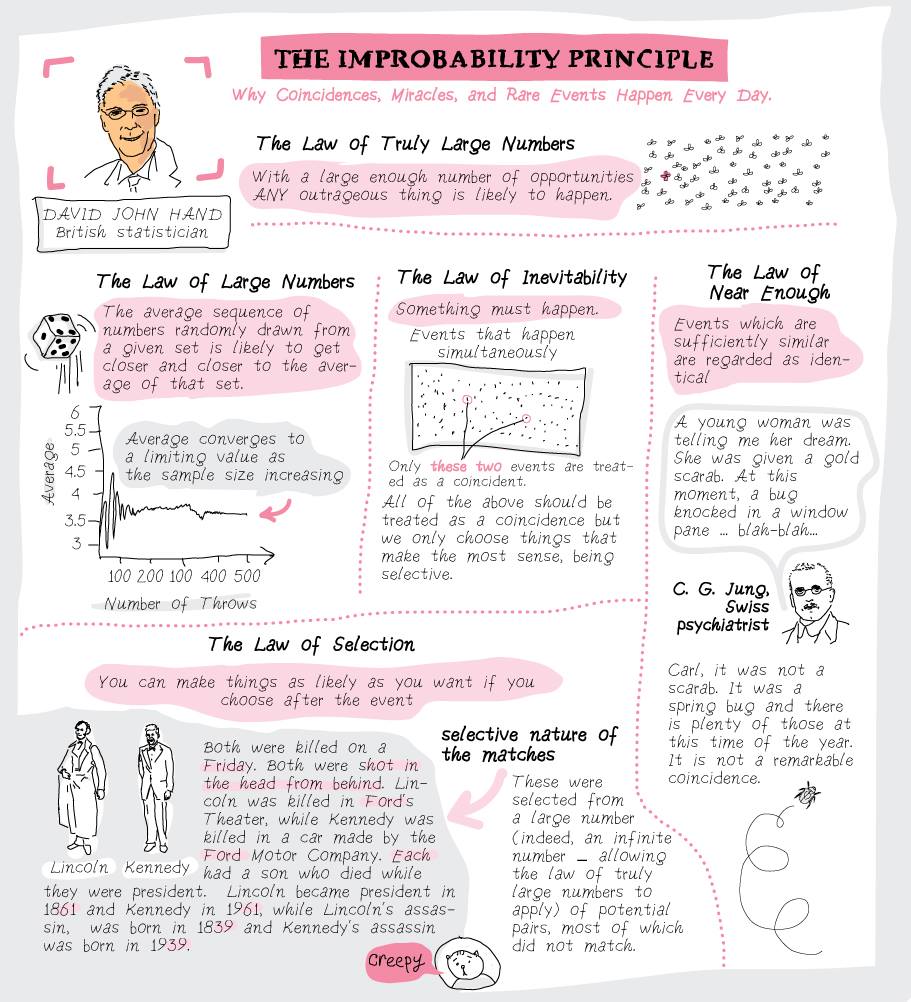 THE IMPROBABILITY PRINCIPLE
Why Coincidences, Miracles, and Rare Events Happen Every Day.
DAVID JOHN HAND
British statistician
The Law of Truly Large Numbers
With a large enough number of opportunities
ANY outrageous thing is likely to happen.
The Law of Large Numbers
The average sequence of
numbers randomly drawn from
a given set is likely to get
closer and closer to the aver-
age of that set.
6
5.5
5
4.5
4
3.5
3
Average
Average converges to
a limiting value as
the sample size increasing
100 200 100 400 500
Number of Throws
The Law of Inevitability
Something must happen.
Events that happen
simultaneously
Only these two events are treat-
ed as a coincident.
All of the above should be
treated as a coincidence but
we only choose things that
make the most sense, being
selective.
The Law of
Near Enough
Events which are
sufficiently similar
are regarded as iden-
tical
A young woman was
telling me her dream.
She was given a gold
scarab. At this
moment, a bug
knocked in a window
pane ... blah-blah...
C. G. Jung,
Swiss
psychiatrist
Carl, it was not a
scarab. It was a
spring bug and there
is plenty of those at
this time of the year.
It is not a remarkable
coincidence.
The Law of Selection
You can make things as likely as you want if you
choose after the event
Lincoln Kennedy
Both were killed on a
Friday. Both were shot in
the head from behind. Lin-
coln was killed in Ford's
Theater, while Kennedy was
killed in a car made by the
Ford Motor Company. Each
had a son who died while
they were president. Lincoln became president in
1861 and Kennedy in 1961, while Lincoln's assas-
sin, was born in 1839 and Kennedy's assassin
was born in 1939.
Creepy
selective nature of
the matches
These were
selected from
a large number
(indeed, an infinite
number – allowing
the law of truly
large numbers to
apply) of potential
pairs, most of which
did not match.